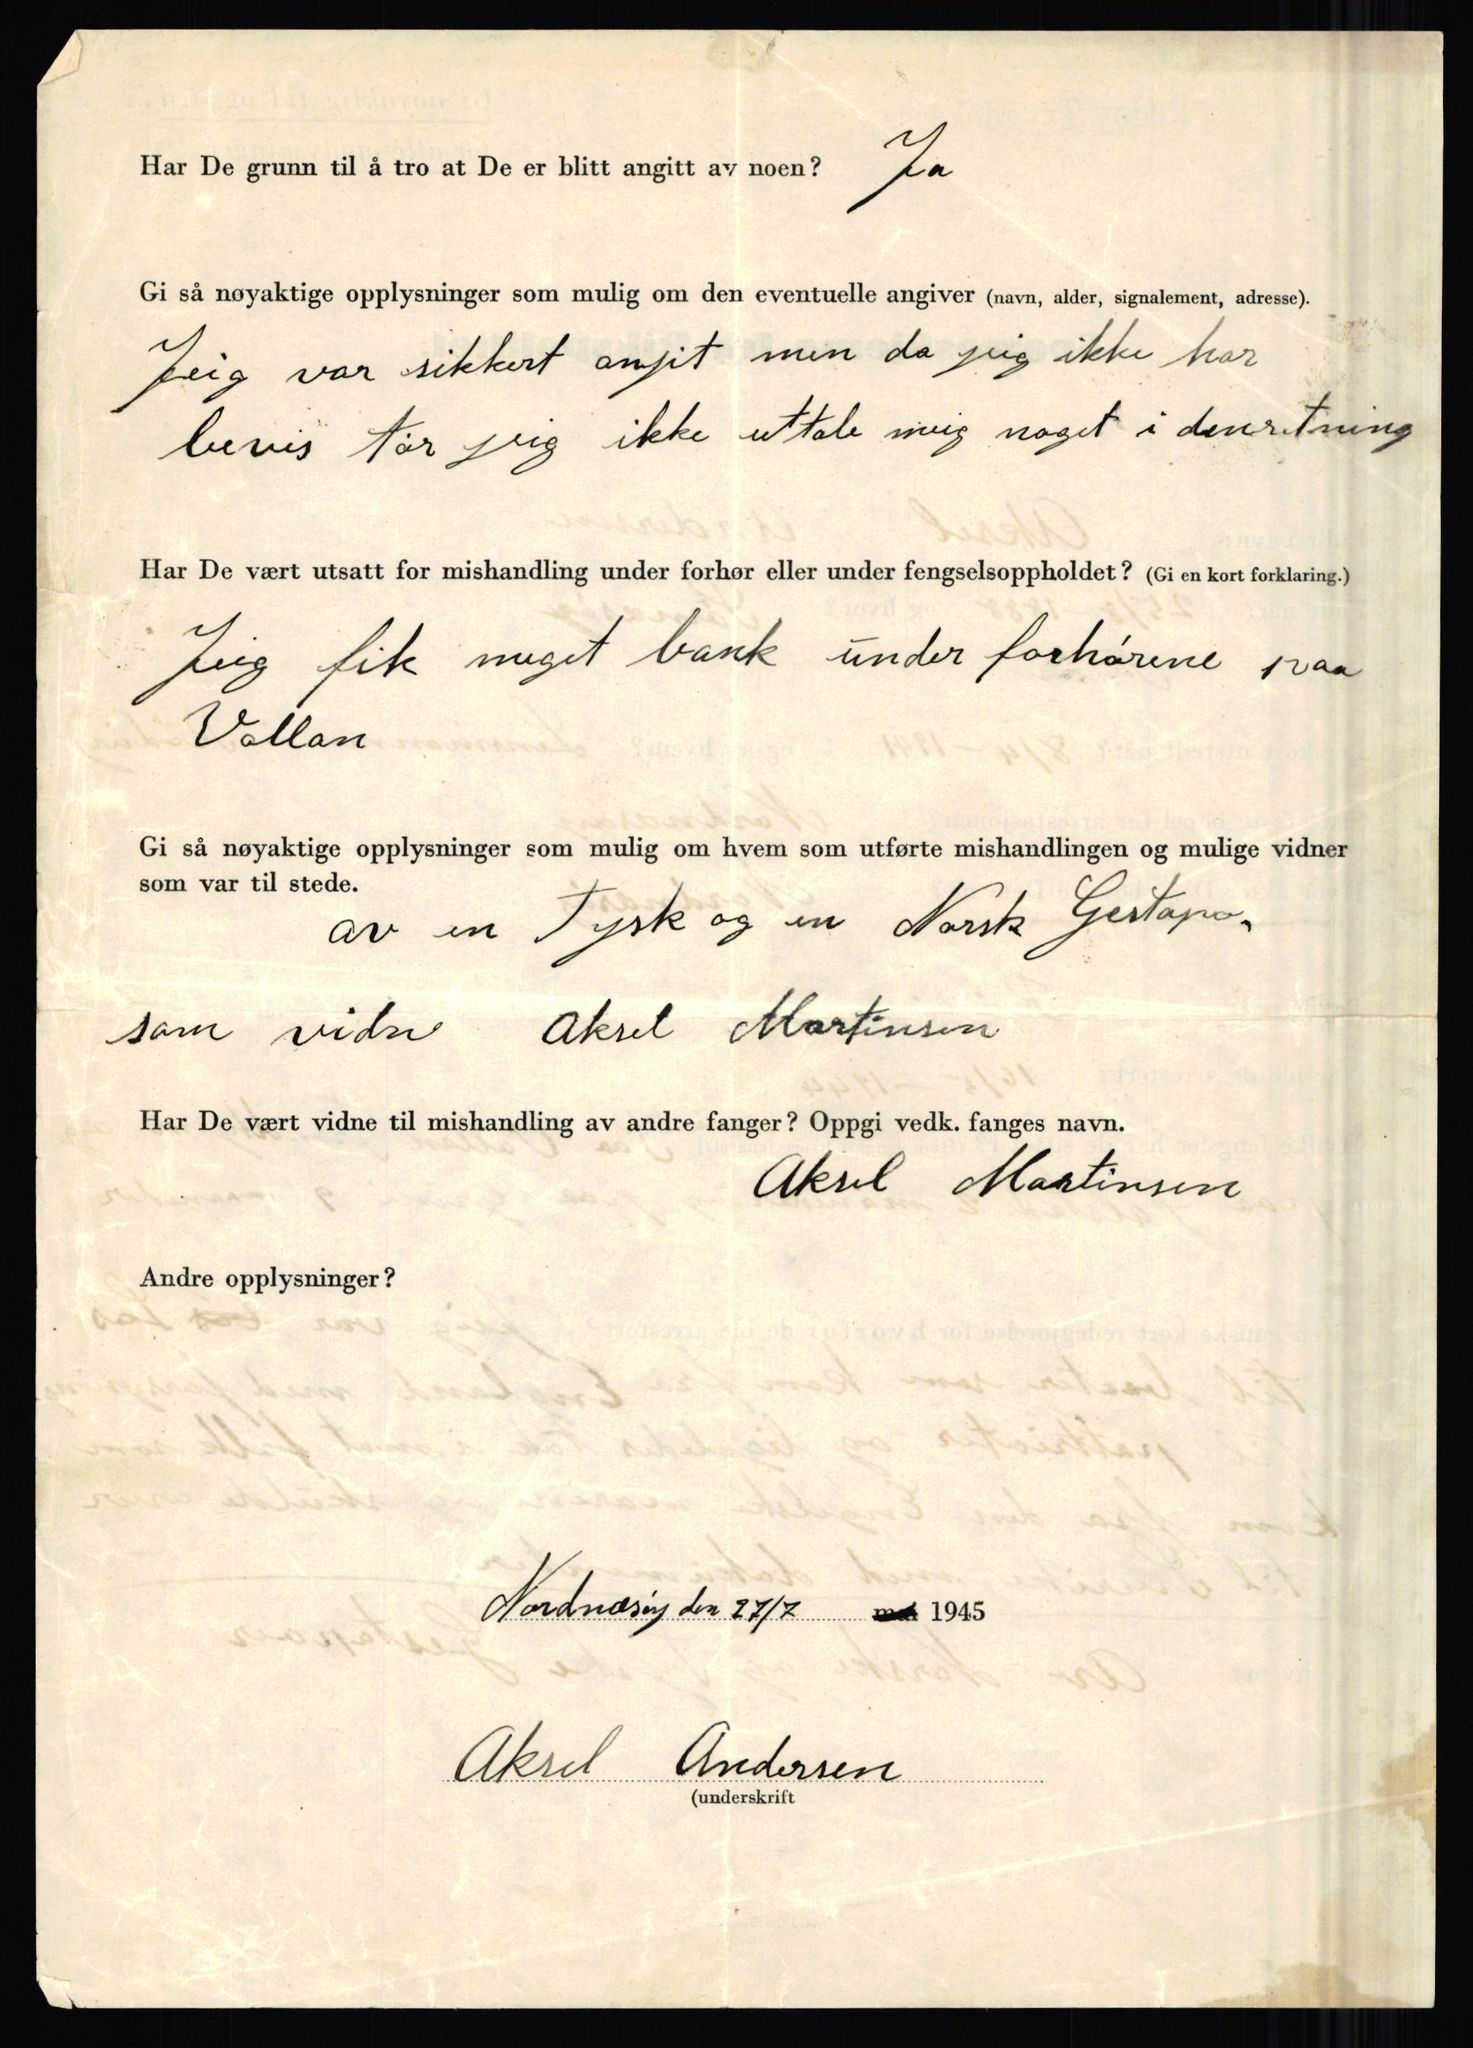 Har De grunn til å tro at De er blitt angitt av noen? Ja
Gi så nøyaktige opplysninger som mulig om den eventuelle angiver (navn, alder, signalement, adresse).
Jeig var sikkert anjit men da jeig ikke har
bevis tør jeig ikke uttale meig noget i denretning
Har De vært utsatt for mishandling under forhør eller under fengselsoppholdet? (Gi en kort forklaring.)
Jeig fik meget bank under forhørene paa
Vollan
Gi så nøyaktige opplysninger som mulig om hvem som utførte mishandlingen og mulige vidner
som var til stede.
av en Tysk og en Norsk Gestapo.
som vidne Aksel Martinsen
Har De vært vidne til mishandling av andre fanger? Oppgi vedk. fanges navn.
Aksel Martinsen
Andre opplysninger?
Nordnæsøy den 27/7 mai 1945
Aksel Andersen
(underskrift